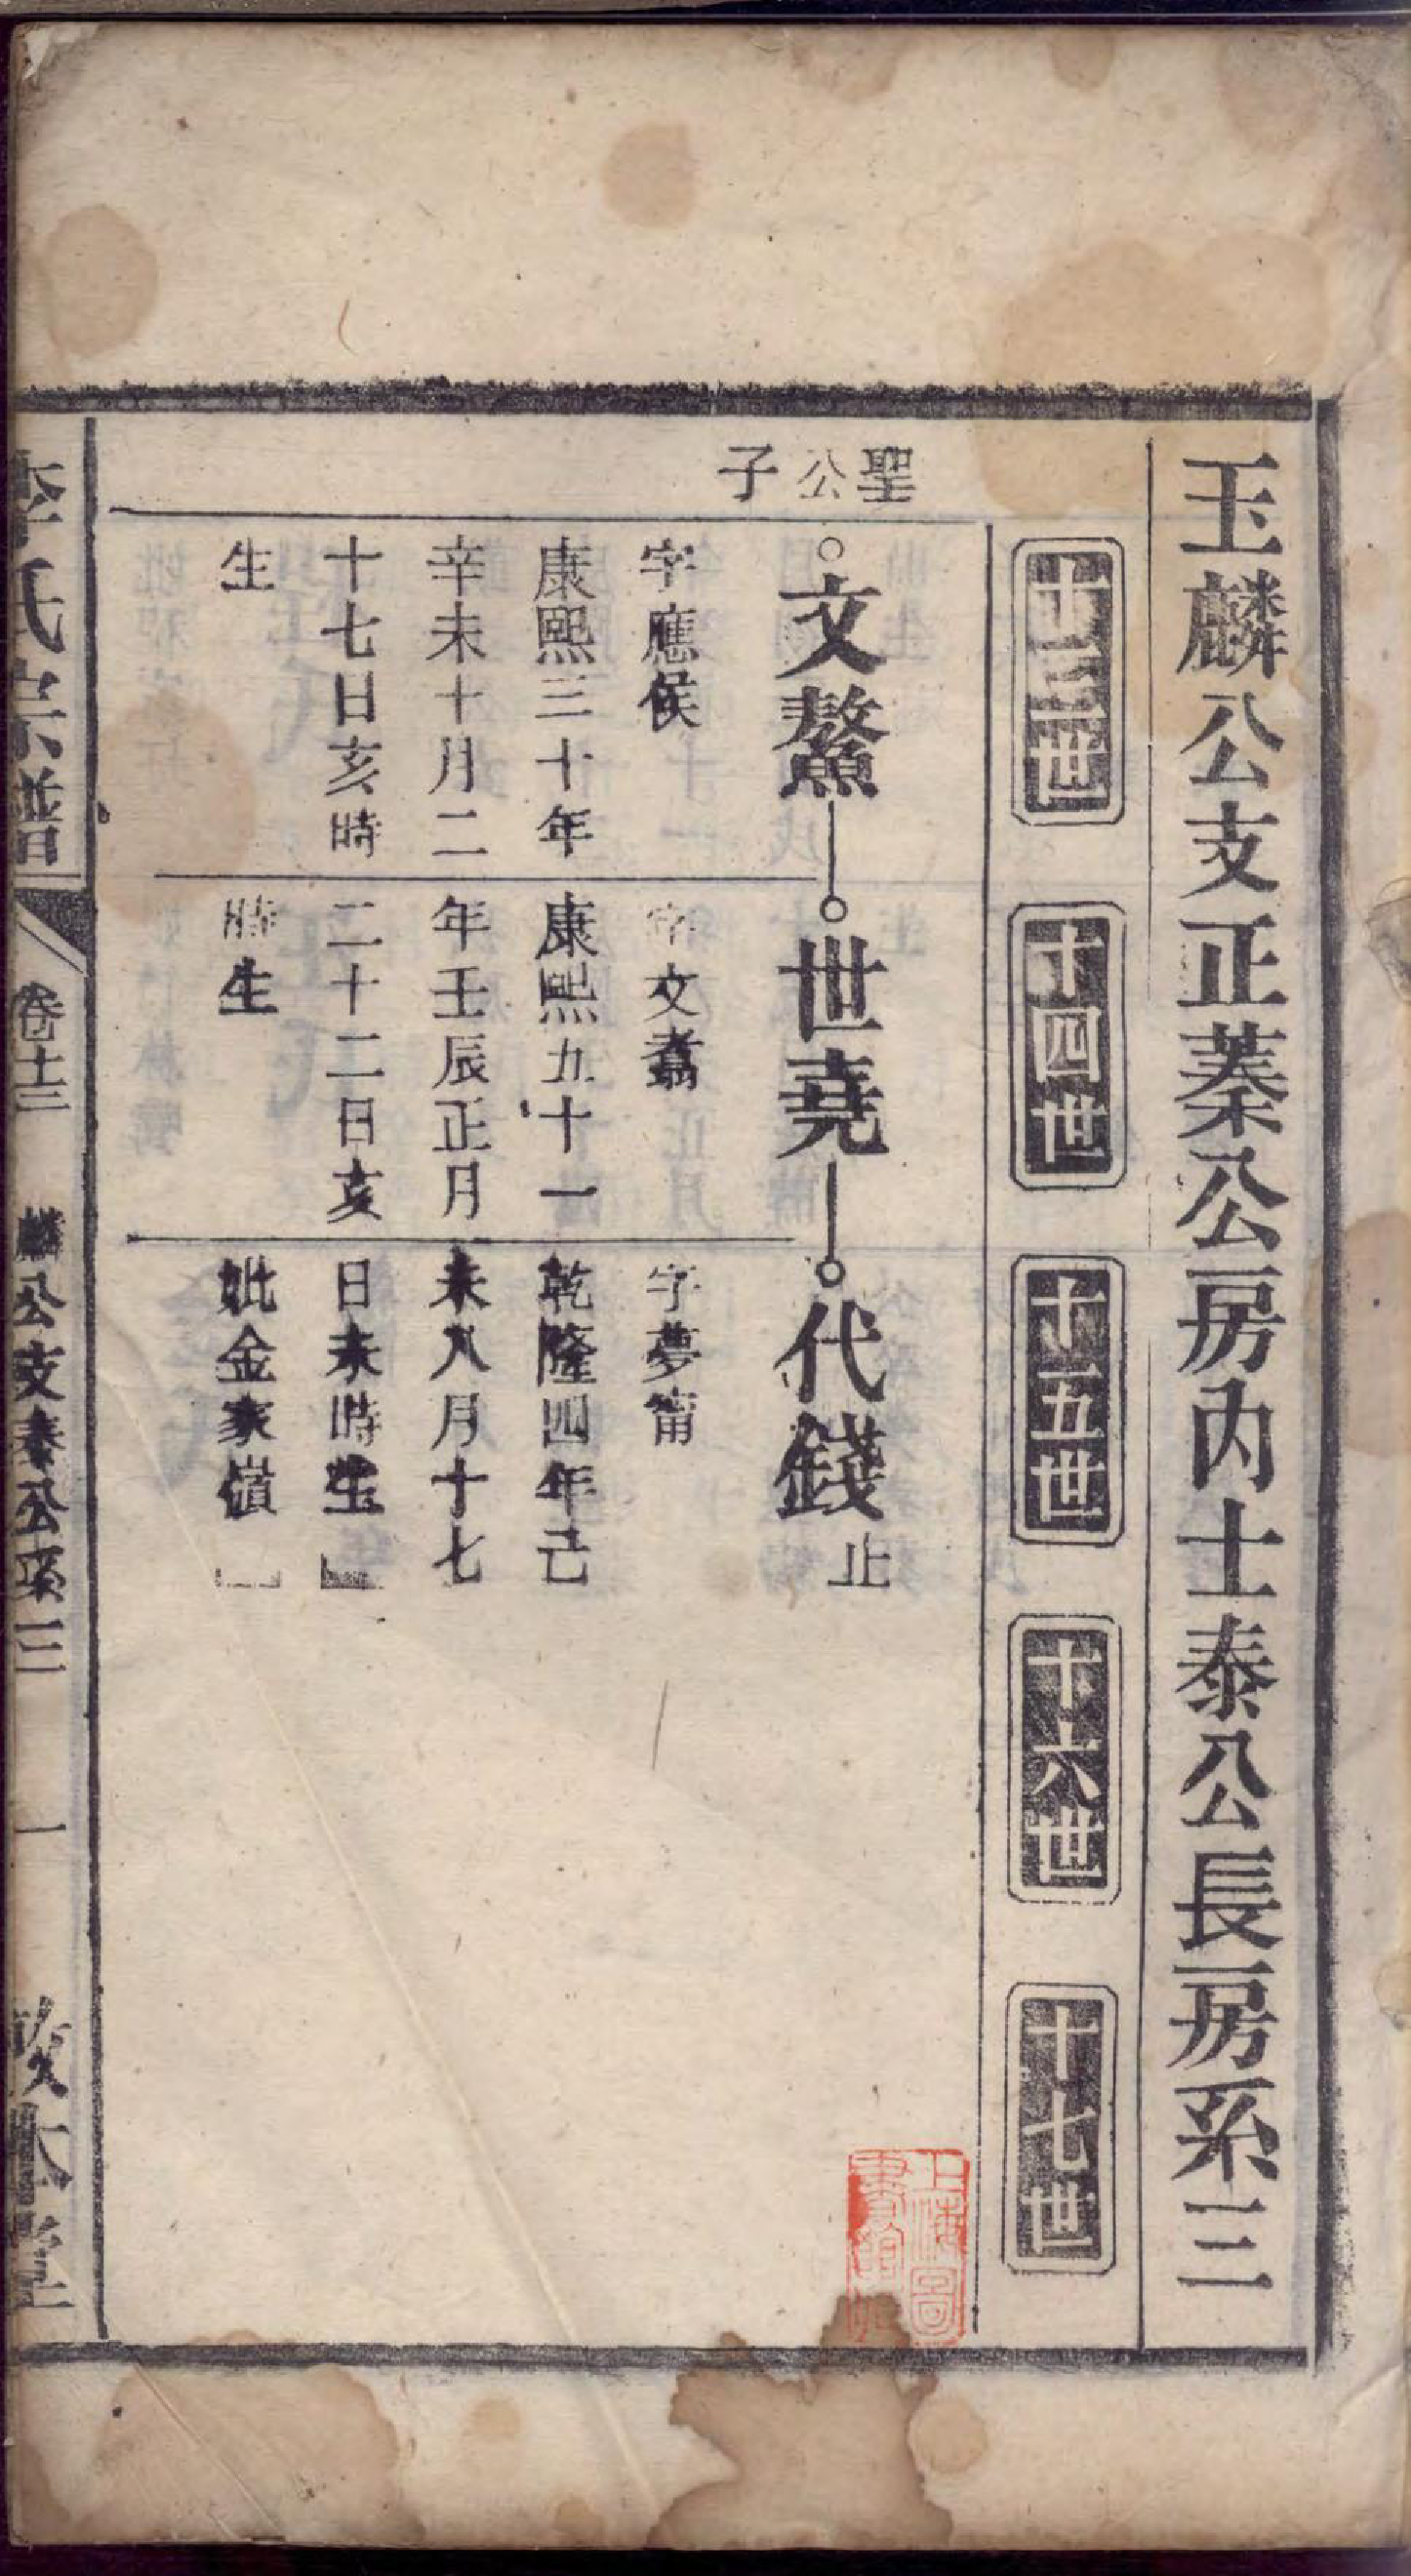 玉麟公支正蓁公房內士泰公長房系三
十三世
十四世
十五世
十六世
十七世
聖公子
文鰲
字應侯
康熙三十年
辛未十月二
十七日亥時
生
世堯
字文翥
康熙五十一
年壬辰正月
二十二日亥
時生
代錢
止
字夢甯
乾隆四年己
未八月十七
日未時生
妣金家嶺
李氏宗譜
卷十三
麟公支泰公系三
一
敦本堂
上海圖書館